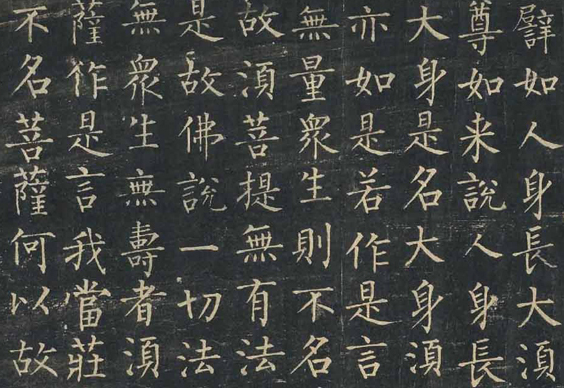 譬如人身長大須
尊如来說人身長
大身是名大身須
亦如是若作是言
無量衆生則不名
故須菩提無有法
是故佛說一切法
無衆生無壽者須
薩作是言我當莊
不名菩薩何以故